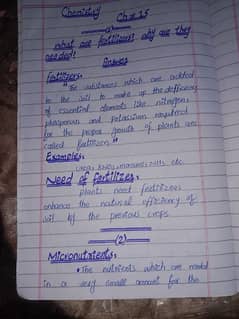 Chemistry Ch# 15
(1)
what are fertilizers? why are they
needed?
Answer
Fertilizers,
"The substances which are added
to the soil to make up the deficiency
of essential elements like nitrogen,
phosphorus and potassium required
for the proper growth of plants are
called fertilizers."
Examples,
Urea, etc.
Need of fertilizers,
plants need fertilizers
enhance the natural efficiency of
soil by the previous crops.
(2)
Micronutrients,
"The nutrients which are needed
in a very small amount for the